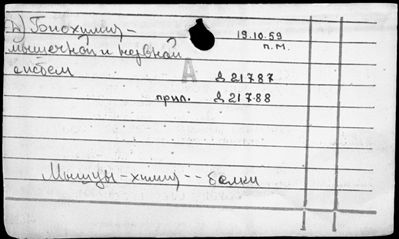 2) Биохимия - 19.10.59
мышечной и нервной п.м.
систем А Д 21787
прип. Д 21788
Мышцы - химия -- белки